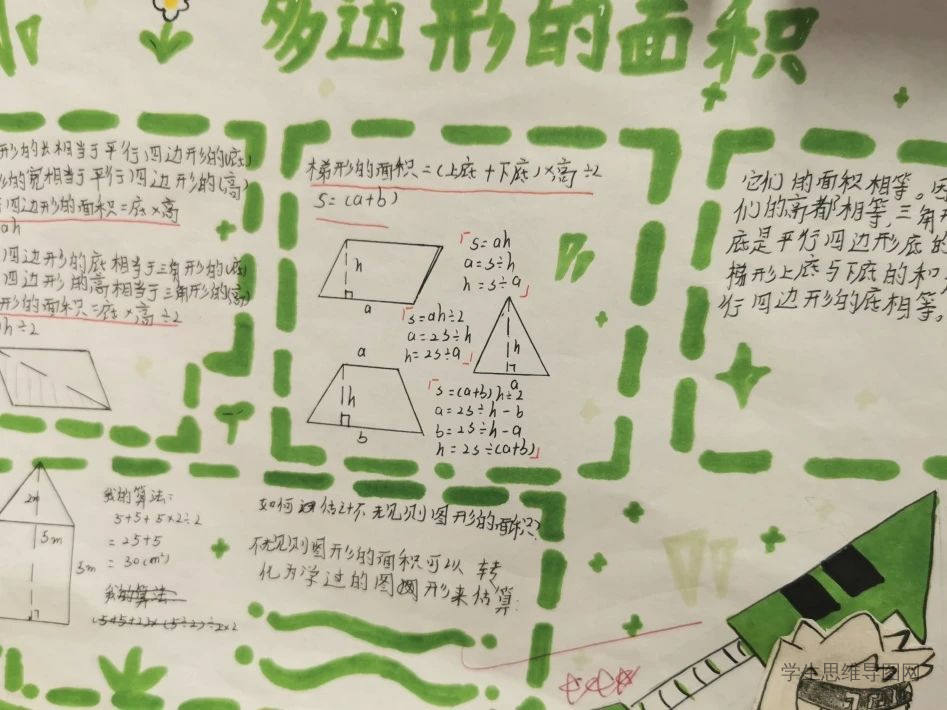 多边形的面积
形的长相当于平行四边形的(底)
形的宽相当于平行四边形的(高)
四边形的面积=底×高
ah
四边形的底相当于三角形的(底)
四边形的高相当于三角形的(高)
形的面积=底×高÷2
ah÷2
梯形的面积=(上底+下底)×高÷2
S=(a+b)
h
a
S=ah
a=S÷h
h=S÷a
S=ah÷2
a=2S÷h
h=2S÷a
h
a
a
h
b
S=(a+b)h÷2
a=2S÷h-b
b=2S÷h-a
h=2S÷(a+b)
它们的面积相等。因
们的高都相等,三角
底是平行四边形底的
梯形上底与下底的和
行四边形的底相等。
2m
5m
5m
我的算法:
5+5+5×2÷2
=25+5
=30(m²)
我的算法
(5+5+2)×(5÷2)÷2×2
如何估计不规则图形的面积?
不规则图形的面积可以转
化为学过的图形来估算.
学生思维导图网